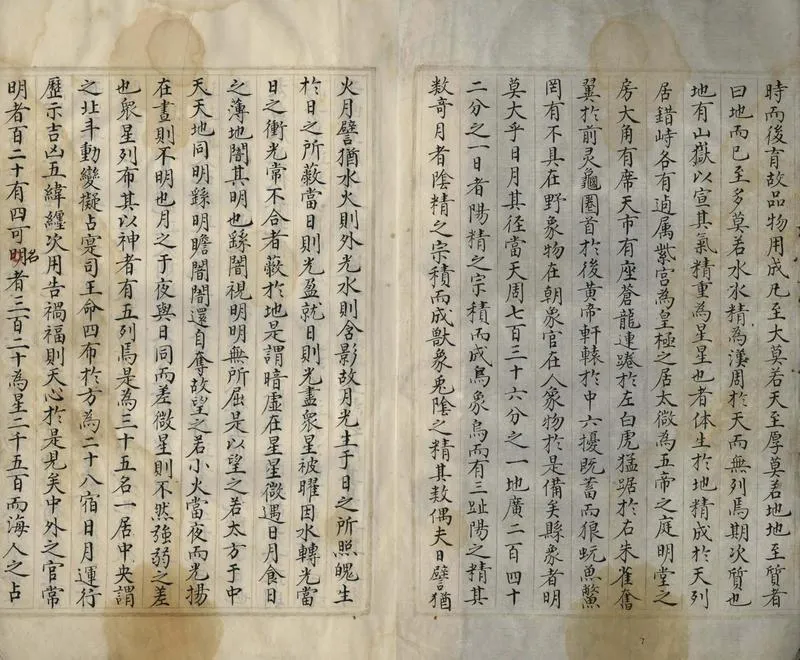 時而後育故品物用成凡至大莫若天至厚莫若地地至質者
曰地而已至多莫若水水精為漢周於天而無列焉期次質也
地有山嶽以宣其氣精重為星星也者体生於地精成於天列
居錯峙各有逌属紫宮為皇極之居太微為五帝之庭明堂之
房大角有席天市有座蒼龍連踡於左白虎猛踞於右朱雀奮
翼於前灵龜圈首於後黄帝軒轅於中六擾既蓄而狼蚖魚鱉
罔有不具在野象物在朝象官在人象物於是備矣縣象者明
莫大乎日月其徑當天周七百三十六分之一地廣二百四十
二分之一日者陽精之宗積而成鳥象烏而有三趾陽之精其
数竒月者陰精之宗積而成獸象兎陰之精其数偶夫日譬猶
7
火月譬猶水火則外光水則含影故月光生于日之所照魄生
於日之所蔽當日則光盈就日則光盡衆星被曜因水轉光當
日之衝光常不合者蔽於地是謂暗虚在星星微遇日月食日
之薄地闇其明也繇闇視明明無所屈是以望之若太方于中
天天地同明繇明瞻闇闇還自奪故望之若小火當夜而光揚
在晝則不明也月之于夜與日同而差微星則不然強弱之差
也衆星列布其以神者有五列焉是為三十五名一居中央謂
之北斗動變擬占寔司王命四布於方為二十八宿日月運行
歷示吉凶五緯纏次用告禍福則天心於是見矣中外之官常
明者百二十有四可明名者三百二十為星二千五百而海人之占